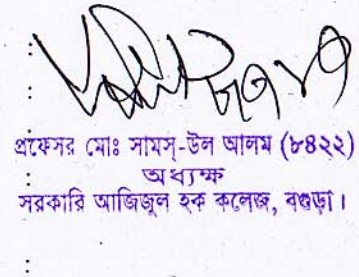 প্রফেসর মোঃ সামস্-উল আলম (৮৪২২)
অধ্যক্ষ
সরকারি আজিজুল হক কলেজ, বগুড়া।